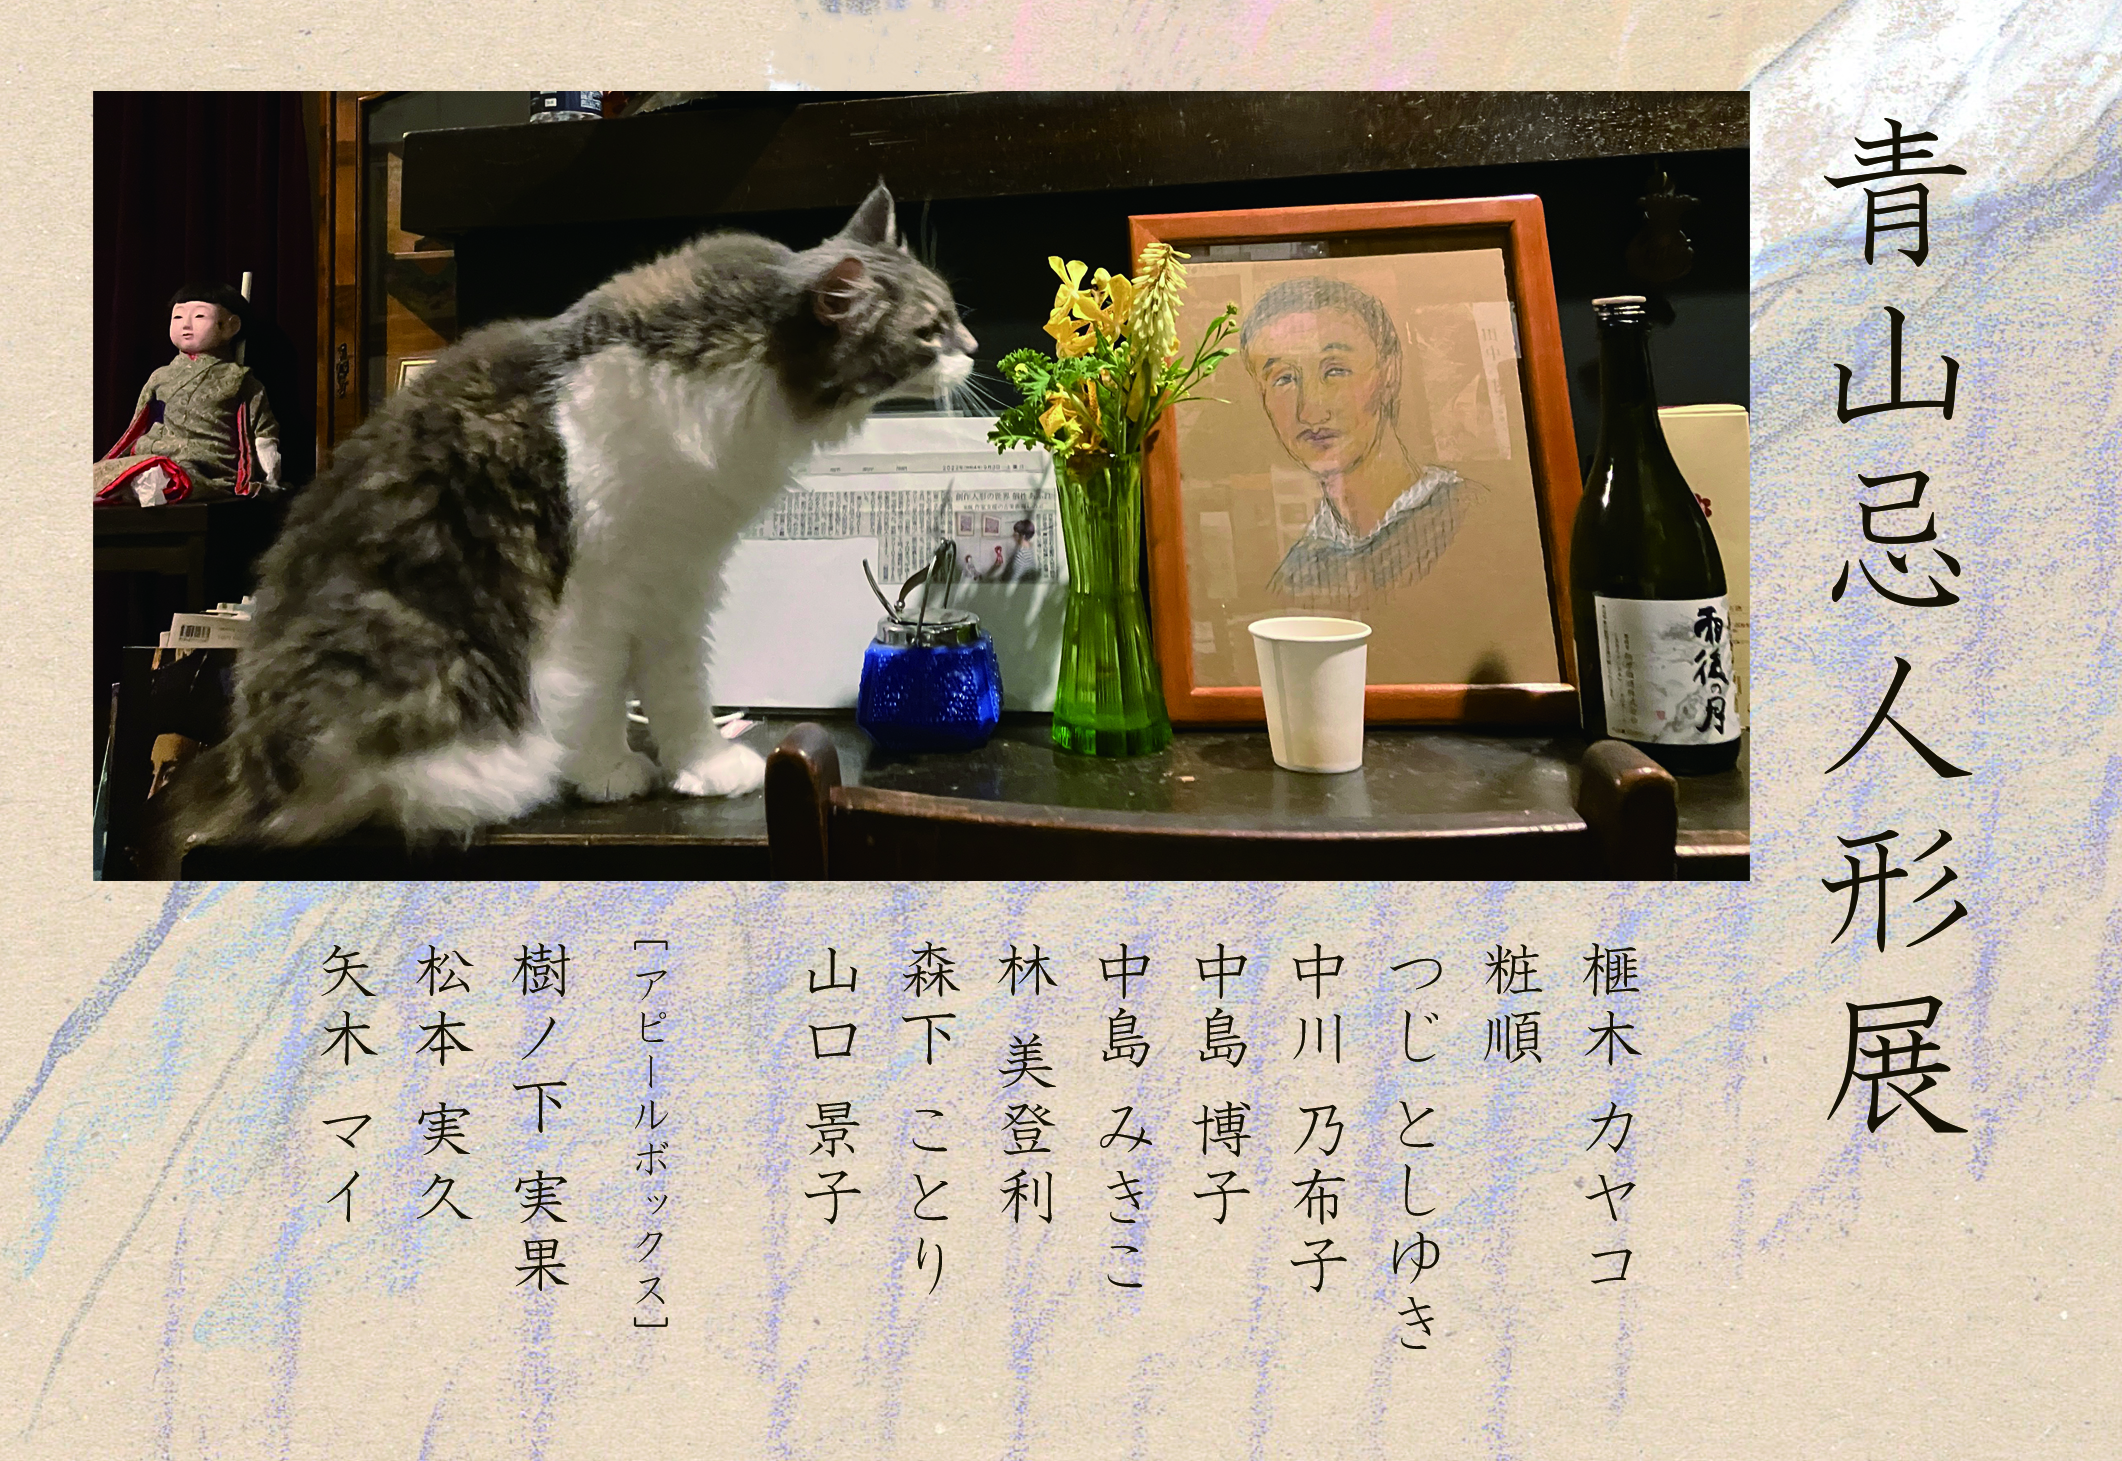 青山忌人形展
榧木 カヤコ
粧順
つじ としゆき
中川 乃布子
中島 博子
中島 みきこ
林 美登利
森下 ことり
山口 景子
［アピールボックス］
樹ノ下 実果
松本 実久
矢木 マイ
創作人形の世界
雨後の月